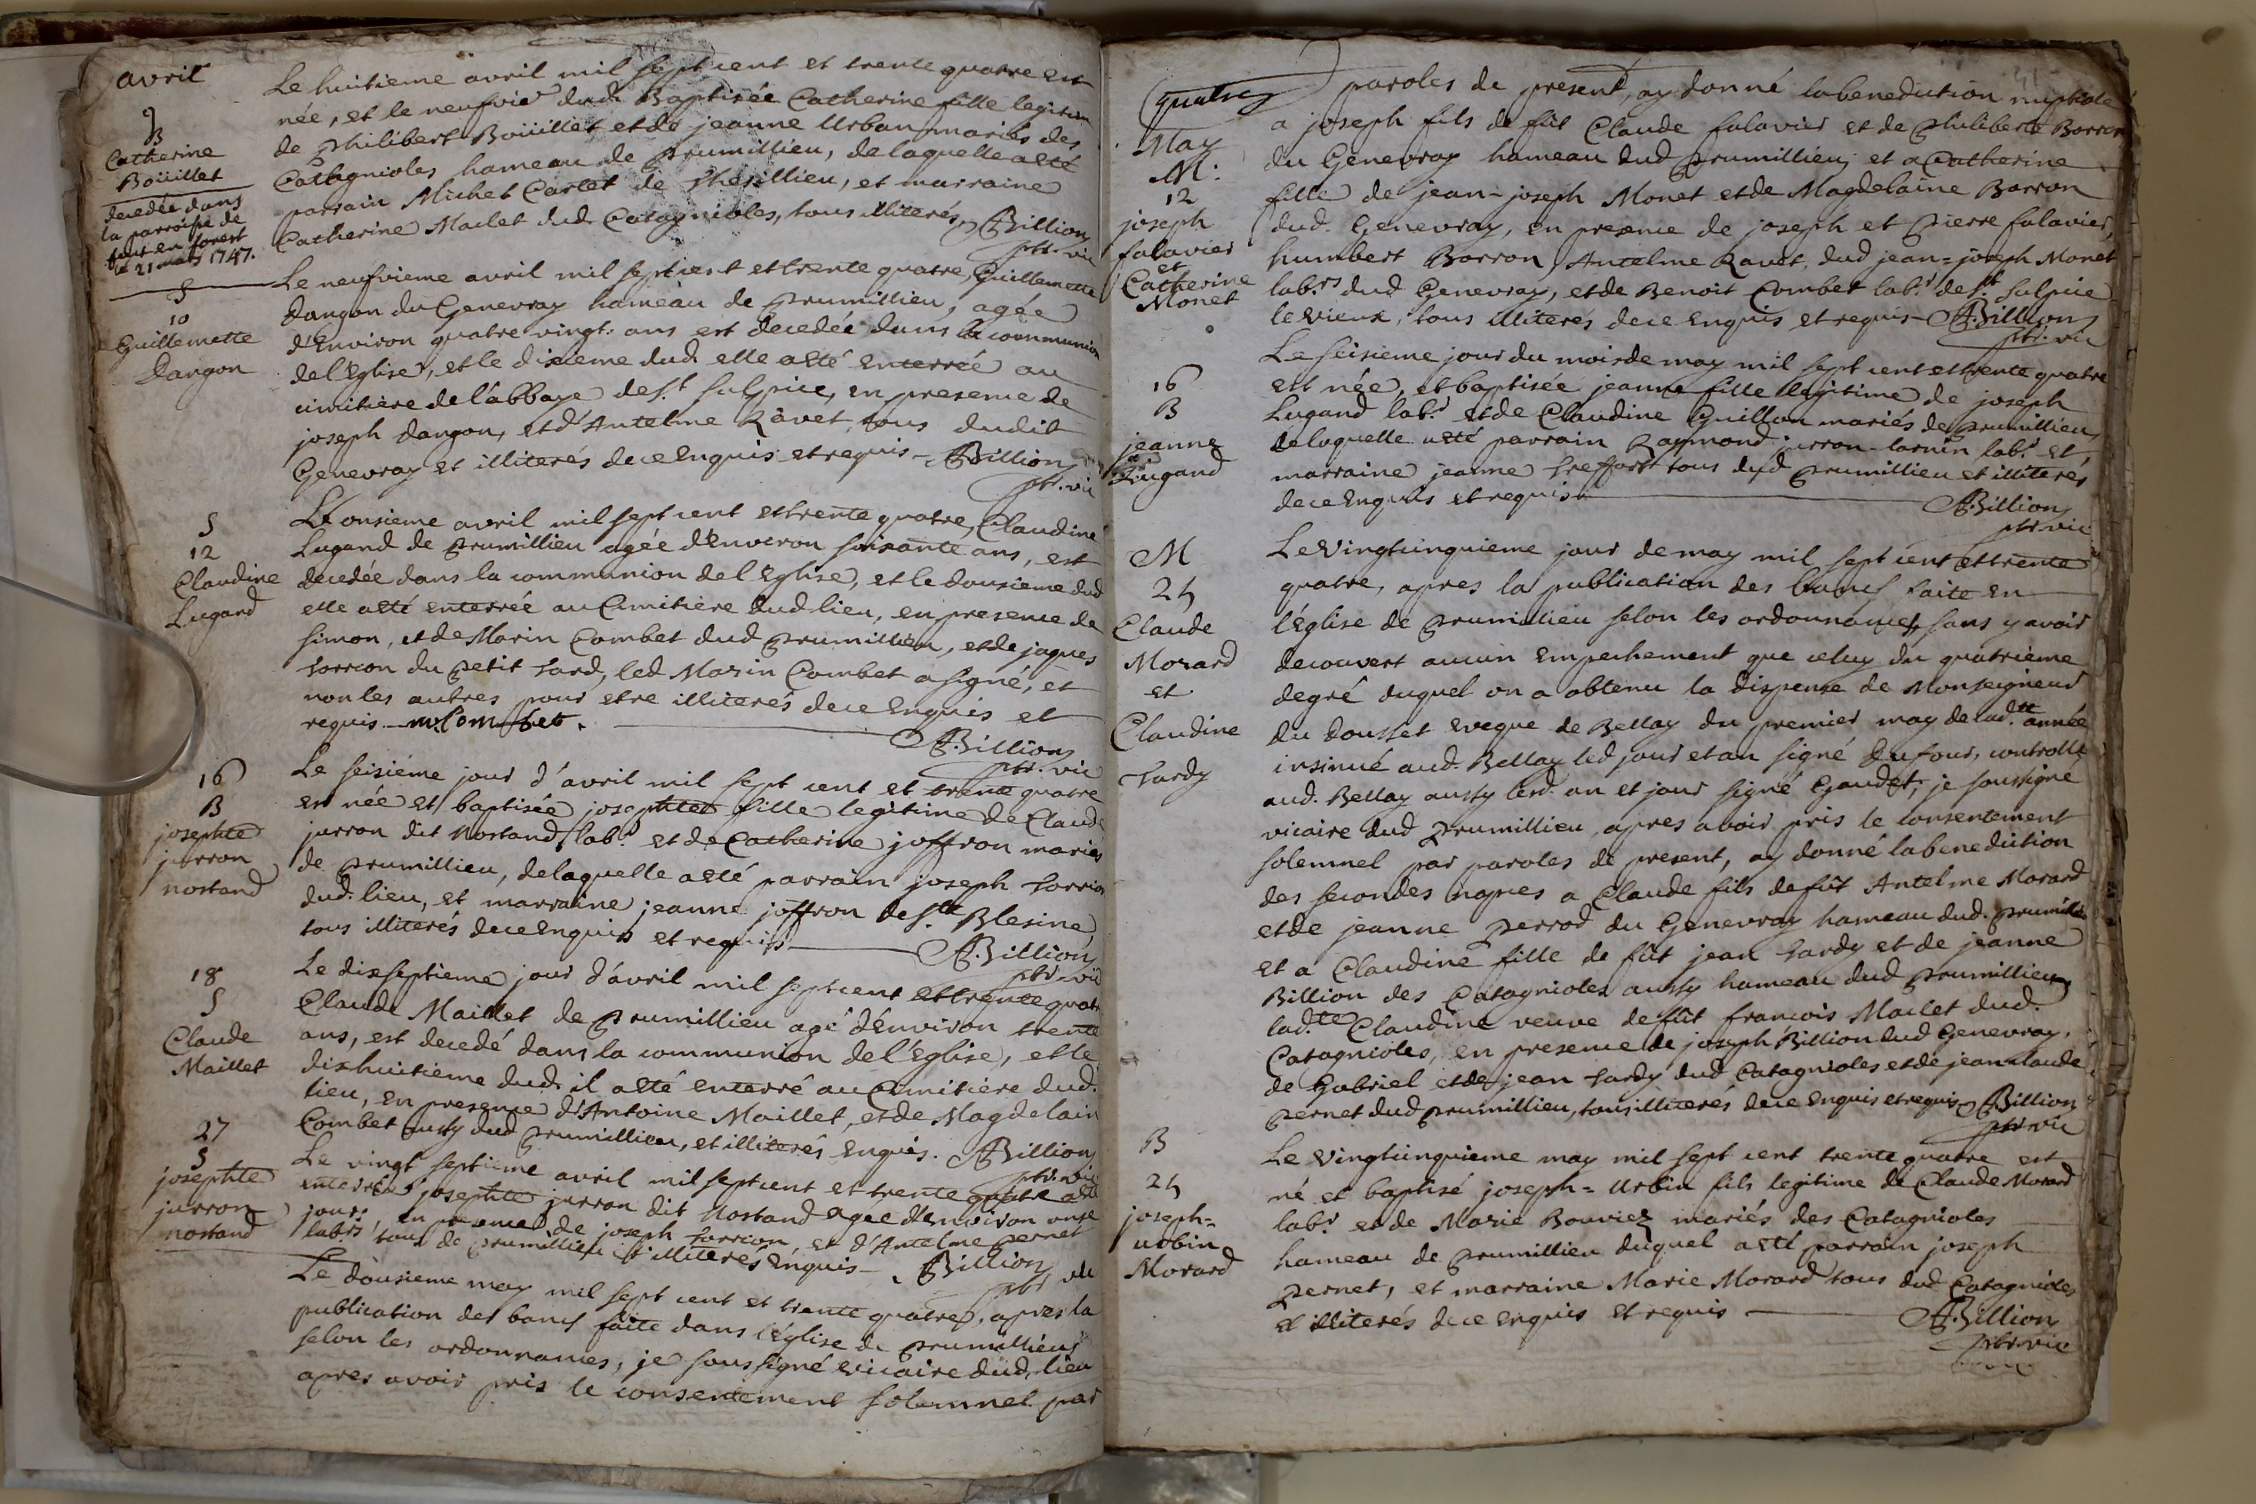 avril
9
B
Catherine
Boüillet
decedée dans
la parroisse de
en forest
le 21 mars 1747.
Le huitieme avril mil sept cent et trente quatre est
née, et le neufvie dud. Baptisée Catherine fille legitime
de Philibert Boüillet et de jeanne Urban mariés des
Catagnioles hameau de prumillieu, de laquelle a eté
parrain Michel Carlet de , et marraine
Catherine Maclet dud. Catagnioles, tous illiterés, A. Billion
ptr. vic
S
10
Guillemette
Dangon
Le neufvieme avril mil sept cent et trente quatre, Guillemette
dangon du Genevray hameau de prumillieu, agée
d'Environ quatre vingt ans est decedée dans la communion
de l'Eglise, et le dixieme dud. elle a eté enterrée au
cimitiere de l'abbaye de st. sulpice, en presence de
joseph dangon, et d'Antelme Ravet, tous dudit
Genevray et illiterés de ce Enquis et requis - A. Billion
ptr. vic
S
12
Claudine
Lugand
Le onsieme avril mil sept cent et trente quatre, Claudine
Lugand de prumillieu agée d'Environ soixante ans, est
decedée dans la communion de l'Eglise, et le dousieme dud.
elle a eté enterrée au Cimitiere dud. lieu, en presence de
simon, et de Marin Combet dud. prumillieu, et de jaques
du petit , led. Marin Combet a signé, et
non les autres pour etre illiterés de ce Enquis et
requis m. Combet.
A. Billion
ptr. vic
16
B
josephte
jurron
nostand
Le seisiéme jour d'avril mil sept cent et trente quatre
est née et baptisée josephte fille legitime de Claude
jurron dit Nostand lab.r et de Catherine joffron mariés
de prumillieu, de laquelle a eté parrain joseph
dud. lieu, et marraine jeanne joffron de ste. Blesine
tous illiterés de ce Enquis et requis A. Billion
ptr. vic
18
S
Claude
Maillet
Le dixseptieme jour d'avril mil sept cent et trente quatre
Claude Maillet de prumillieu agé d'Environ trente
ans, est decedé dans la communion de l'Eglise, et le
dixhuitieme dud. il a eté enterré au Cimitiere dud.
lieu, en presence d'Antoine Maillet, et de Magdelain
Combet aussy dud. prumillieu, et illiterés enquis. A. Billion
ptr. vic
27
S
josephte
jurron
nostand
Le vingt septieme avril mil sept cent et trente quatre a eté
enterrée josephte jurron dit Nostand agée d'Environ onse
jours, en presence de joseph et d'Antelme pernet
lab.rs tous de prumillieu et illiterés enquis - A. Billion
ptr vic
Le dousieme may mil sept cent et trente quatre, apres la
publication des bancs faite dans l'église de prumillieu
selon les ordonnances, je soussigné vicaire dud. lieu
apres avoir pris le consentement solemnel par
quatre
May
M.
12
joseph
falavier
et
Catherine
Monet
paroles de present, ay donné la benediction nuptiale
a joseph fils de fût Claude falavier et de Philiberte Borron
du Genevray hameau dud. prumillieu, et a Catherine
fille de jean-joseph Monet et de Magdelaine Borron
dud. Genevray, en presence de joseph et Pierre falavier,
humbert Borron, Antelme Ravet, dud. jean=joseph Monet
lab.rs dud. Genevray, et de Benoit Combet lab.r de st. sulpice
le vieux, tous illiterés de ce enquis et requis - A. Billion
ptr. vic
16
B
jeanne
Lugand
Le seisieme jour du mois de may mil sept cent et trente quatre
est née, et baptisée jeanne fille legitime de joseph
Lugand lab.r et de Claudine Guillon mariés de prumillieu,
de laquelle a eté parrain Raymond jurron - lab.r et
marraine jeanne tous dud. prumillieu et illiterés
de ce enquis et requis
A. Billion
ptr. vic
M
25
Claude
Morard
et
Claudine
tardy
Le vingtcinquieme jour de may mil sept cent et trente
quatre, apres la publication des bancs faite en
l'église de prumillieu selon les ordonnances, sans y avoir
decouvert aucun Empechement que celuy du quatrieme
degré duquel on a obtenu la dispense de Monseigneur
du doucet eveque de Bellay du premier may de lad.te année
insinué aud. Bellay led. jour et an signé dufour, controllé
aud. Bellay aussy lesd. an et jour signé Gaudet, je soussigné
vicaire dud. prumillieu, apres avoir pris le consentement
solemnel par paroles de present, ay donné la benediction
des secondes nopces a Claude fils de fût Antelme Morard
et de jeanne perrod du Genevray hameau dud. prumillieu
et a Claudine fille de fût jean tardy et de jeanne
Billion des Catagnioles aussy hameau dud. prumillieu,
lad.te Claudine veuve de fût françois Maclet dud.
Catagnioles, en presence de joseph Billion dud. Genevray,
de Gabriel et de jean tardy dud. Catagnioles et de jean claude
pernet dud. prumillieu, tous illiterés de ce enquis et requis A. Billion
ptr. vic
B
25
joseph=
urbin
Morard
Le vingtcinquieme may mil sept cent trente quatre est
né et baptisé joseph=Urbin fils legitime de Claude Morard
lab.r et de Marie Bouviez mariés des Catagnioles
hameau de prumillieu duquel a eté parrain joseph
pernet, et marraine Marie Morard tous dud. Catagnioles
et illiterés de ce enquis et requis A. Billion
ptr. vic